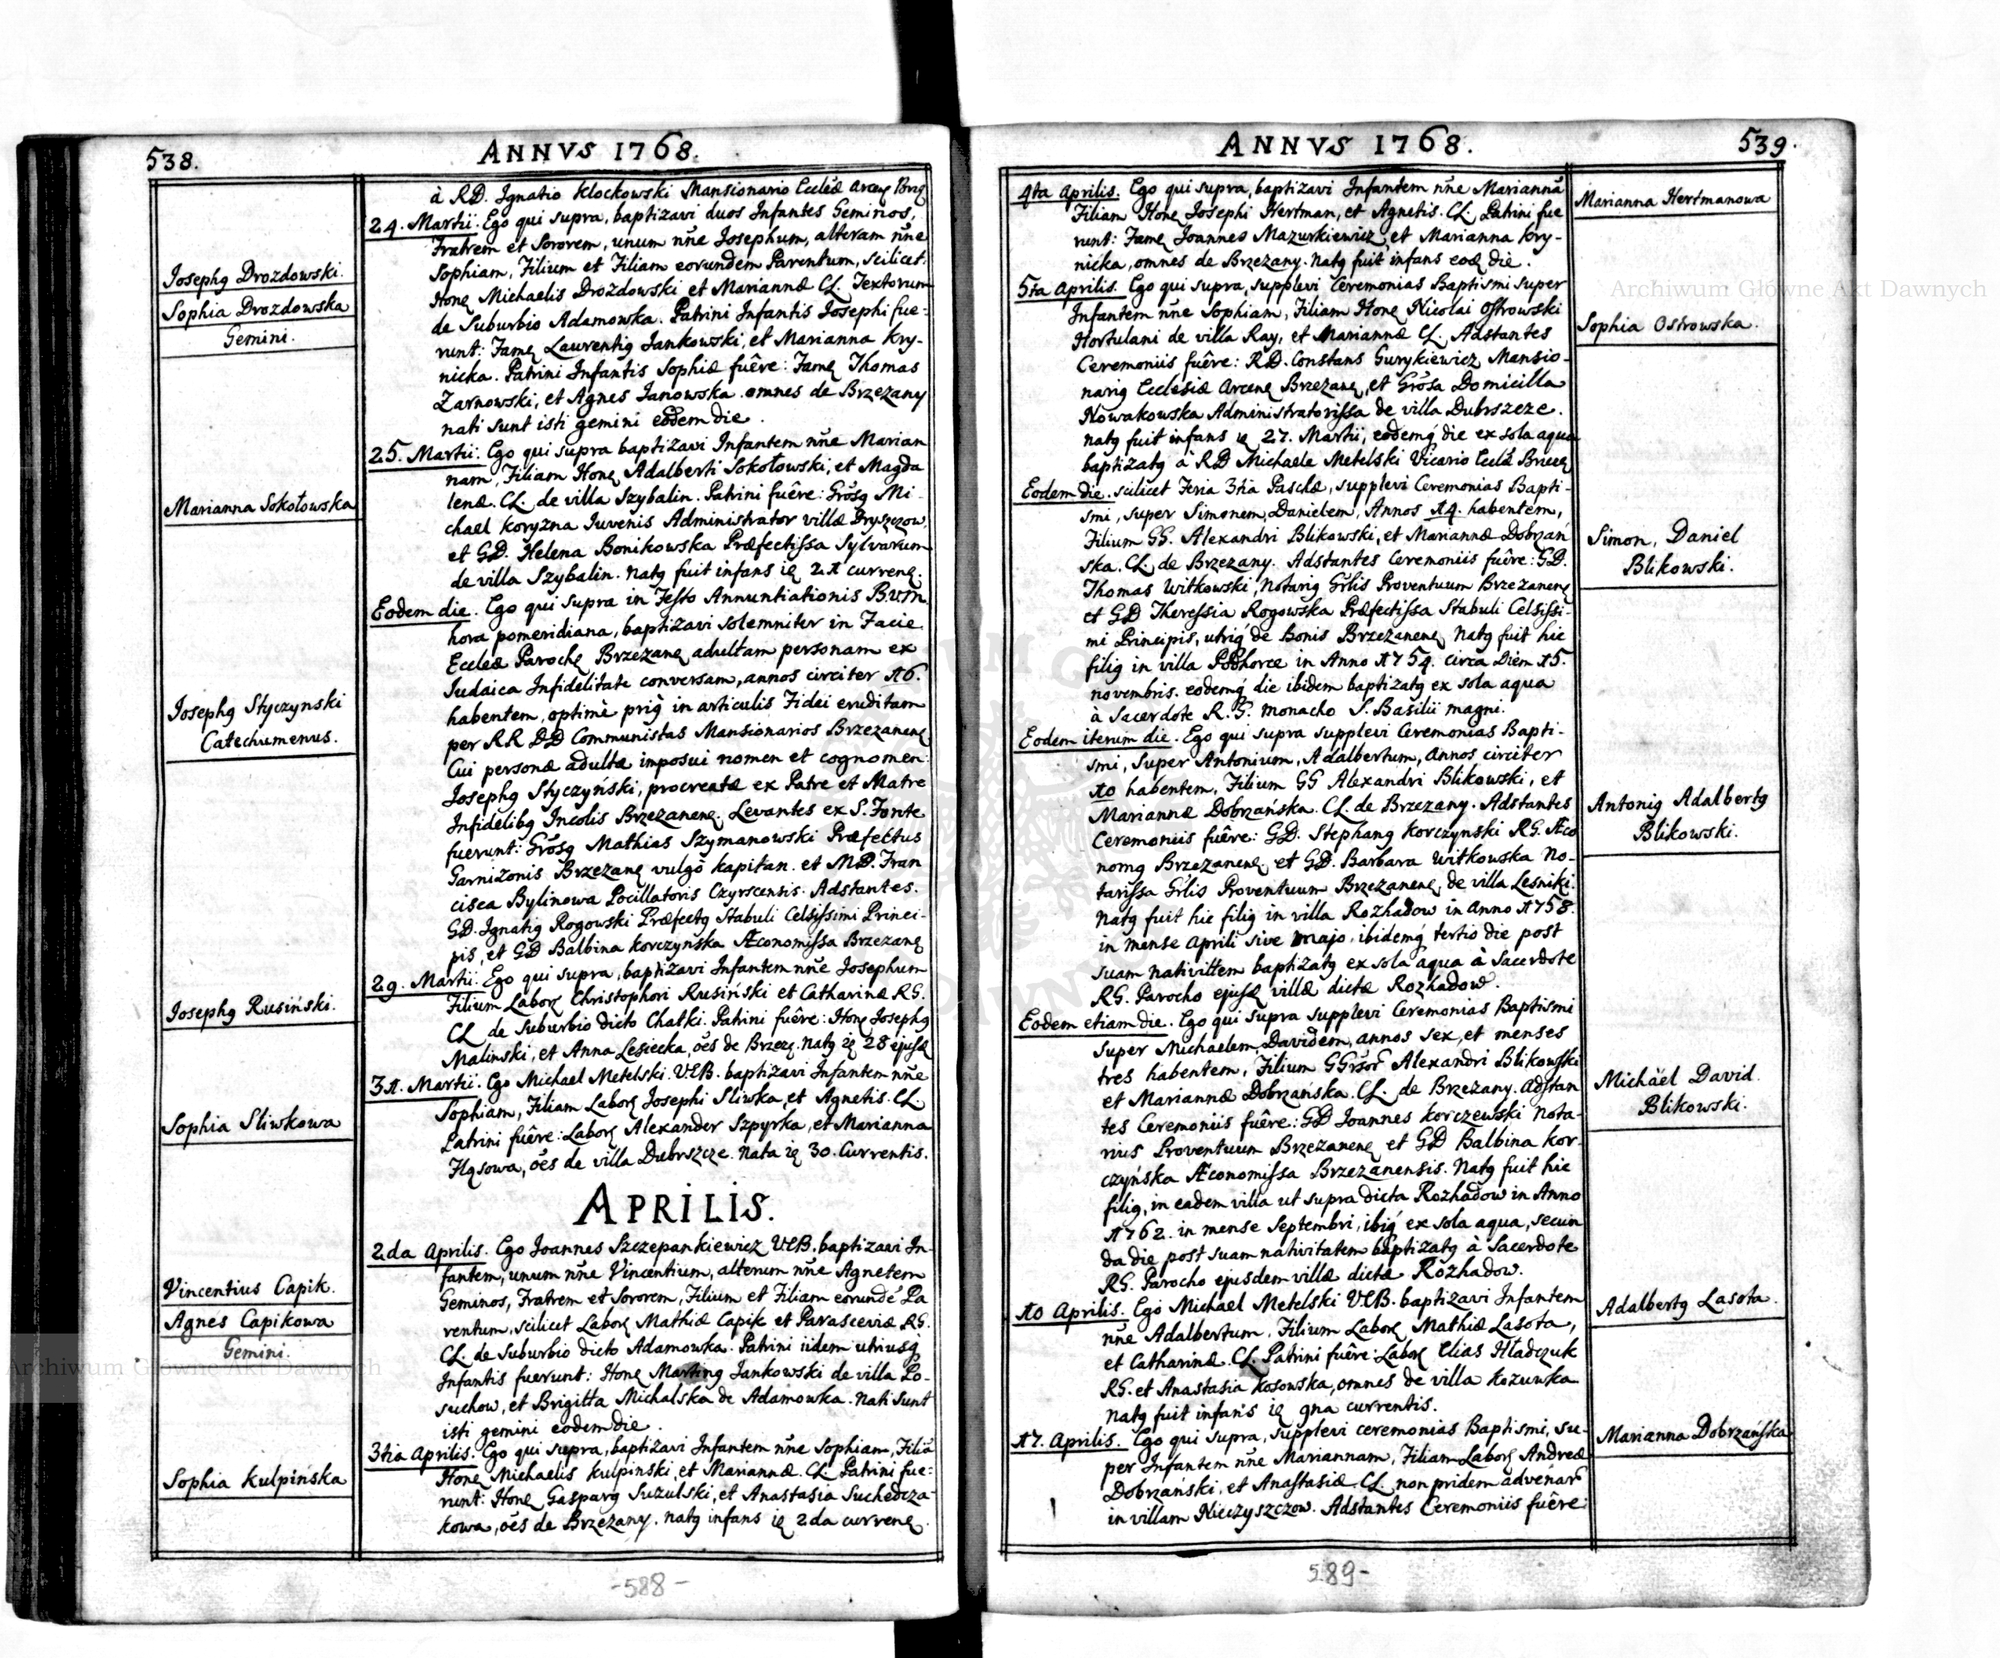 538.
ANNVS 1768.
à RD. Ignatio Klockowski Mansionario Eccleæ Arcens Brzez
24. Martii. Ego qui supra, baptizavi duos Infantes Geminos,
Fratrem et Sororem, unum nñe Josephum, alteram nñe
Sophiam, Filium et Filiam eorundem Parentum, scilicet:
Josephq Drozdowski.
Sophia Drozdowska
Gemini.
Honę Michaelis Drozdowski et Mariannæ CL. Textorum
de Suburbio Adamowka. Patrini Infantis Josephi fue-
runt: Famę Laurentiq Jankowski, et Marianna Kry-
nicka. Patrini Infantis Sophiæ fuêre: Famę Thomas
Zarnowski, et Agnes Janowska omnes de Brzezany
nati sunt isti gemini eodem die.
25. Martii. Ego qui supra baptizavi Infantem nñe Marian
nam, Filiam Honę Adalberti Sokołowski, et Magda
Marianna Sokołowska
lenæ. CL. de villa Szybalin. Patrini fuêre: Grosq Mi-
chael Koryzna Iuvenis Administrator villæ Dryszczow.
et GD. Helena Bonikowska Præfectissa Sylvarum
de villa Szybalin. Natq fuit infans ię 21 currenę.
Eodem die. Ego qui supra in Festo Annuntiationis B.V.M.
hora pomeridiana, baptizavi solemniter in Facie
Eccleæ Parochę Brzezanę adultam personam ex
Judaica Infidelitate conversam, annos circiter 16.
Josephq Styczynski
Catechumenus.
habentem, optimè priq in articulis Fidei eruditam
per RR DD Communistas Mansionarios Brzezanenę
Cui personæ adultæ imposui nomen et cognomen:
Josephq Styczyński, procreatæ ex Patre et Matre
Infidelibq Incolis Brzezanenę. Levantes ex S. Fonte
fuerunt: Grosq Mathias Szymanowski Præfectus
Garnizonis Brzezanę vulgò Kapitan. et MD. Fran
cisca Bylinowa Pocillatoris Czyrscensis. Adstantes.
GD. Ignatiq Rogowski Præfectq Stabuli Celsissimi Princi-
pis, et GD Balbina Korczynska Æconomissa Brzezanę
29. Martii. Ego qui supra, baptizavi Infantem nñe Josephum
Josephq Rusiński.
Filium Laborę Christophori Rusiński et Catharinæ RG.
CL de Suburbio dicto Chatki. Patrini fuêre: Honę Josephq
Malinski, et Anna Lesiecka, oẽs de Brzezę. Natq ię 28 ejusę
31. Martii. Ego Michael Metelski. VEB. baptizavi Infantem nñe
Sophia Sliwkowa
Sophiam, Filiam Laborę Josephi Sliwka, et Agnetis. CL
Patrini fuêre: Laborę Alexander Szpyrka, et Marianna
Hąsowa, oẽs de villa Dubrszcze. Nata ię 30. Currentis.
APRILIS.
2da Aprilis. Ego Joannes Szczepankiewicz VEB. baptizavi In-
Vincentius Capik.
Agnes Capikowa
Gemini.
fantem, unum nñe Vincentium, alterum nñe Agnetem
Geminos, Fratrem et Sororem, Filium et Filiam eorundẽ Pa
rentum, scilicet Laborę Mathiæ Capik et Parasceviæ RG.
CL. de Suburbio dicto Adamowka. Patrini iidem utriusq
Infantis fuerunt: Honę Martinq Jankowski de villa Po-
suchow, et Brigitta Michalska de Adamowka. Nati sunt
isti gemini eodem die.
3tia Aprilis. Ego qui supra, baptizavi Infantem nñe Sophiam, Filiã
Sophia Kulpińska
Honę Michaelis Kulpinski, et Mariannæ. CL Patrini fue-
runt: Honę Gasparq Suzulski, et Anastasia Suchedcza-
kowa, oẽs de Brzezany. Natq infans ię 2da currenę.
-588-
ANNVS 1768.
539.
4ta Aprilis. Ego qui supra, baptizavi Infantem nñe Mariannã
Marianna Hertmanowa
Filiam Honę Josephi Hertman, et Agnetis. CL. Patrini fue
runt: Famę Joannes Mazurkiewicz, et Marianna Kry-
nicka, omnes de Brzezany. Natq fuit infans eoę die.
5ta Aprilis. Ego qui supra, supplevi Ceremonias Baptismi super
Infantem nñe Sophiam, Filiam Honę Nicolai Ostrowski
Sophia Ostrowska.
Hortulani de villa Ray, et Mariannæ CL. Adstantes
Ceremoniis fuêre: RD. Constans Gurykiewicz Mansio-
nariq Ecclesiæ Arcenę Brzezanę, et Grosa Domicilla
Nowakowska Administratorissa de villa Dubrszcze.
natq fuit infans ię 27. Martii, eodemq die ex sola aqua
baptizatq à RD Michaele Metelski Vicario Eccłæ Brzezę
Eodem die. scilicet Feria 3tia Paschæ, supplevi Ceremonias Bapti-
smi, super Simonem, Danielem, Annos 14. habentem,
Simon, Daniel
Blikowski.
Filium GG. Alexandri Blikowski, et Mariannæ Dobrzań
ska. CL. de Brzezany. Adstantes Ceremoniis fuêre: GD.
Thomas Witkowski, Notariq Grlis Proventuum Brzezanenę
et GD Theressia Rogowska Præfectissa Stabuli Celsissi-
mi Principis, utriq de Bonis Brzezanenę Natq fuit hic
filiq in villa Podhorce in Anno 1754. circa Diem 15.
novembris. eodemq die ibidem baptizatq ex sola aqua
à Sacerdote R.G. Monacho S. Basilii magni.
Eodem iterum die. Ego qui supra supplevi Ceremonias Bapti-
smi, super Antonium, Adalbertum, annos circiter
10 habentem, Filium GG Alexandri Blikowski, et
Antoniq Adalbertq
Blikowski.
Mariannæ Dobrzańska. CL de Brzezany. Adstantes
Ceremoniis fuêre: GD. Stephanq Korczynski RG. Æco
nomq Brzezanenę et GD. Barbara Witkowska No-
tarissa Grlis Proventuum Brzezanenę, de villa Lesniki.
Natq fuit hic filiq in villa Rozhadow in Anno 1758.
in mense Aprili sive Majo, ibidemq tertio die post
suam nativittem baptizatq ex sola aqua à Sacerdote
RG. Parocho ejusę villæ dictæ Rozhadow.
Eodem etiam die. Ego qui supra supplevi Ceremonias Baptismi
super Michaelem, Davidem, annos sex, et menses
Michäel David.
Blikowski.
tres habentem, Filium GGrsor Alexandri Blikowski
et Mariannæ Dobrzańska. CL. de Brzezany. Adstan
tes Ceremoniis fuêre: GD Joannes Korczewski Nota-
rius Proventuum Brzezanenę et GD Balbina Kor-
czyńska Æconomissa Brzezanensis. Natq fuit hic
filiq, in eadem villa ut supra dicta Rozhadow in Anno
1762. in mense Septembri, ibiq ex sola aqua, secun
da die post suam nativitatem baptizatq à Sacerdote
RG. Parocho ejusdem villæ dictæ Rozhadow.
10 Aprilis. Ego Michael Metelski VEB. baptizavi Infantem
Adalbertq Lasota.
nñe Adalbertum, Filium Laborę Mathiæ Lasota,
et Catharinæ. CL. Patrini fuêre: Laborę Elias Hładczuk
RG. et Anastasia Kosowska, omnes de villa Kozuwka
Natq fuit infans ię 9na currentis.
17. Aprilis. Ego qui supra, supplevi ceremonias Baptismi, su-
Marianna Dobrzańska
per Infantem nñe Mariannam, Filiam Laborę Andreæ
Dobrzański, et Anastasiæ. CL. non pridem advenar
in villam Nieczyszczow. Adstantes Ceremoniis fuêre:
589-
Archiwum Główne Akt Dawnych
Archiwum Główne Akt Dawnych